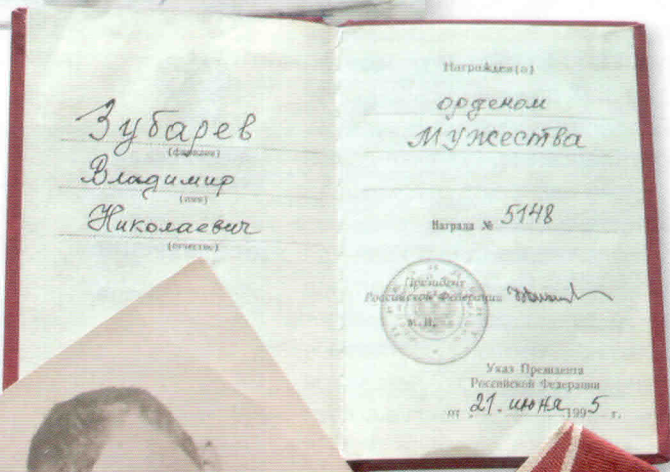 Зубарев
(фамилия)
Владимир
(имя)
Николаевич
(отчество)
Награжден(а)
орденом
МУжества
Награда № 5148
Президент
Российской Федерации
М.П.
Указ Президента
Российской Федерации
от 21. июня 1995 г.